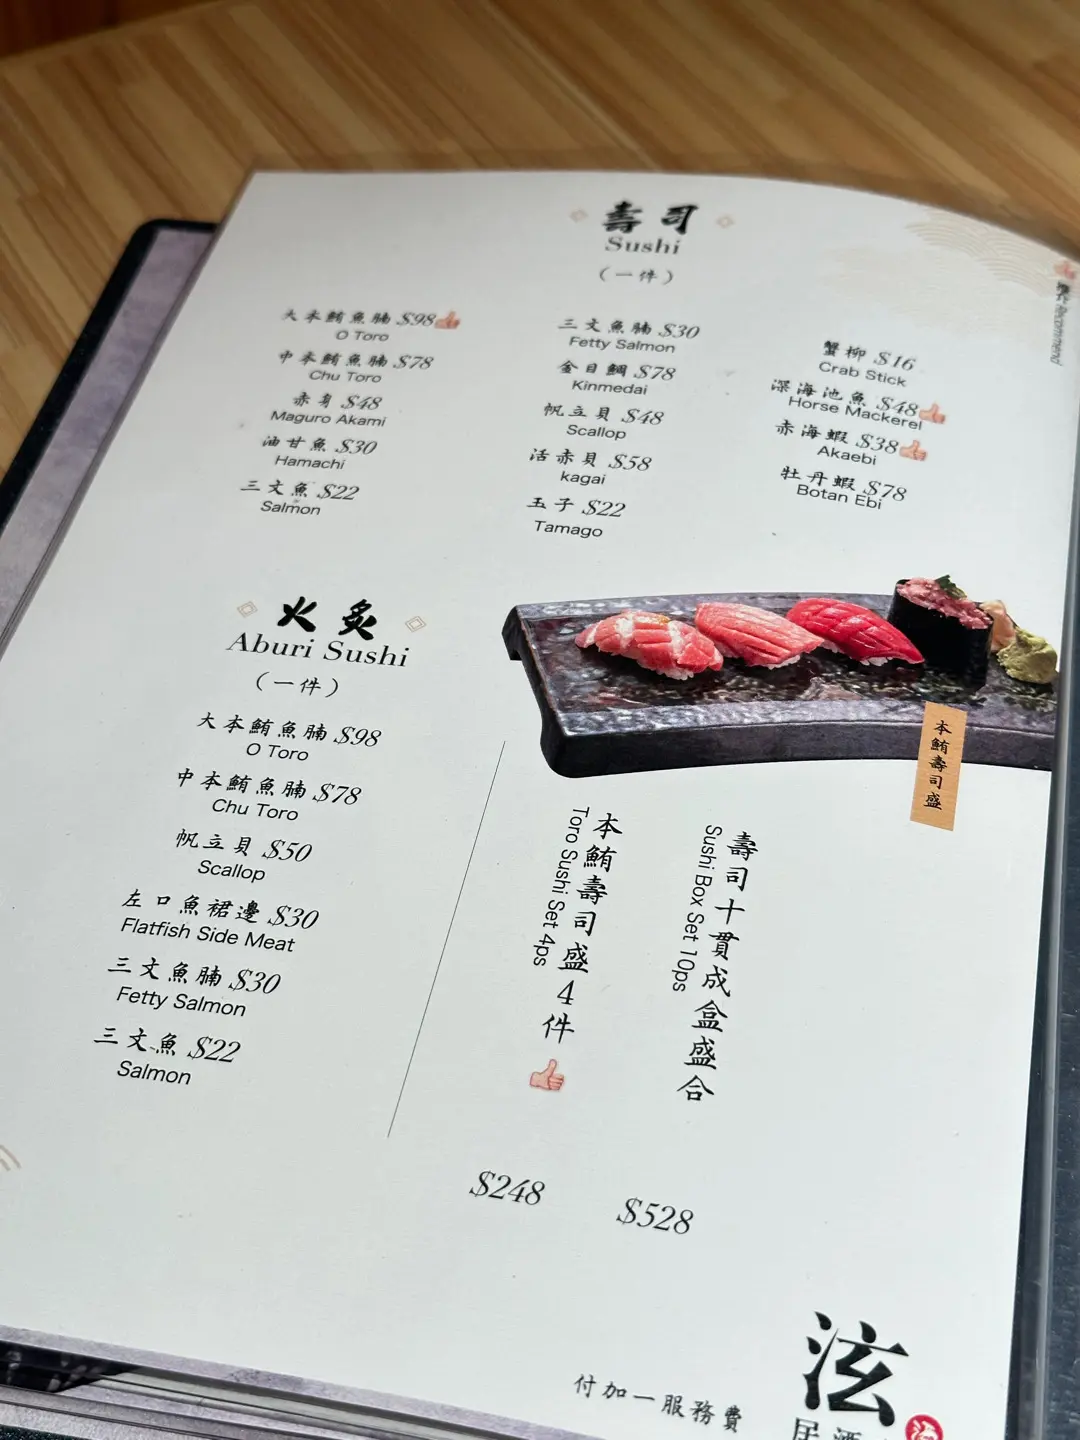 壽司
Sushi
(一件)
大本鮪魚腩 $98
O Toro
中本鮪魚腩 $78
Chu Toro
赤身 $48
Maguro Akami
油甘魚 $30
Hamachi
三文魚 $22
Salmon
三文魚腩 $30
Fetty Salmon
金目鯛 $78
Kinmedai
帆立貝 $48
Scallop
活赤貝 $58
kagai
玉子 $22
Tamago
蟹柳 $16
Crab Stick
深海池魚 $48
Horse Mackerel
赤海蝦 $38
Akaebi
牡丹蝦 $78
Botan Ebi
推介 Recommend
火炙
Aburi Sushi
(一件)
大本鮪魚腩 $98
O Toro
中本鮪魚腩 $78
Chu Toro
帆立貝 $50
Scallop
左口魚裙邊 $30
Flatfish Side Meat
三文魚腩 $30
Fetty Salmon
三文魚 $22
Salmon
本鮪壽司盛
壽司十貫成盒盛合
Sushi Box Set 10ps
$528
本鮪壽司盛4件
Toro Sushi Set 4ps
$248
付加一服務費
泫
居酒